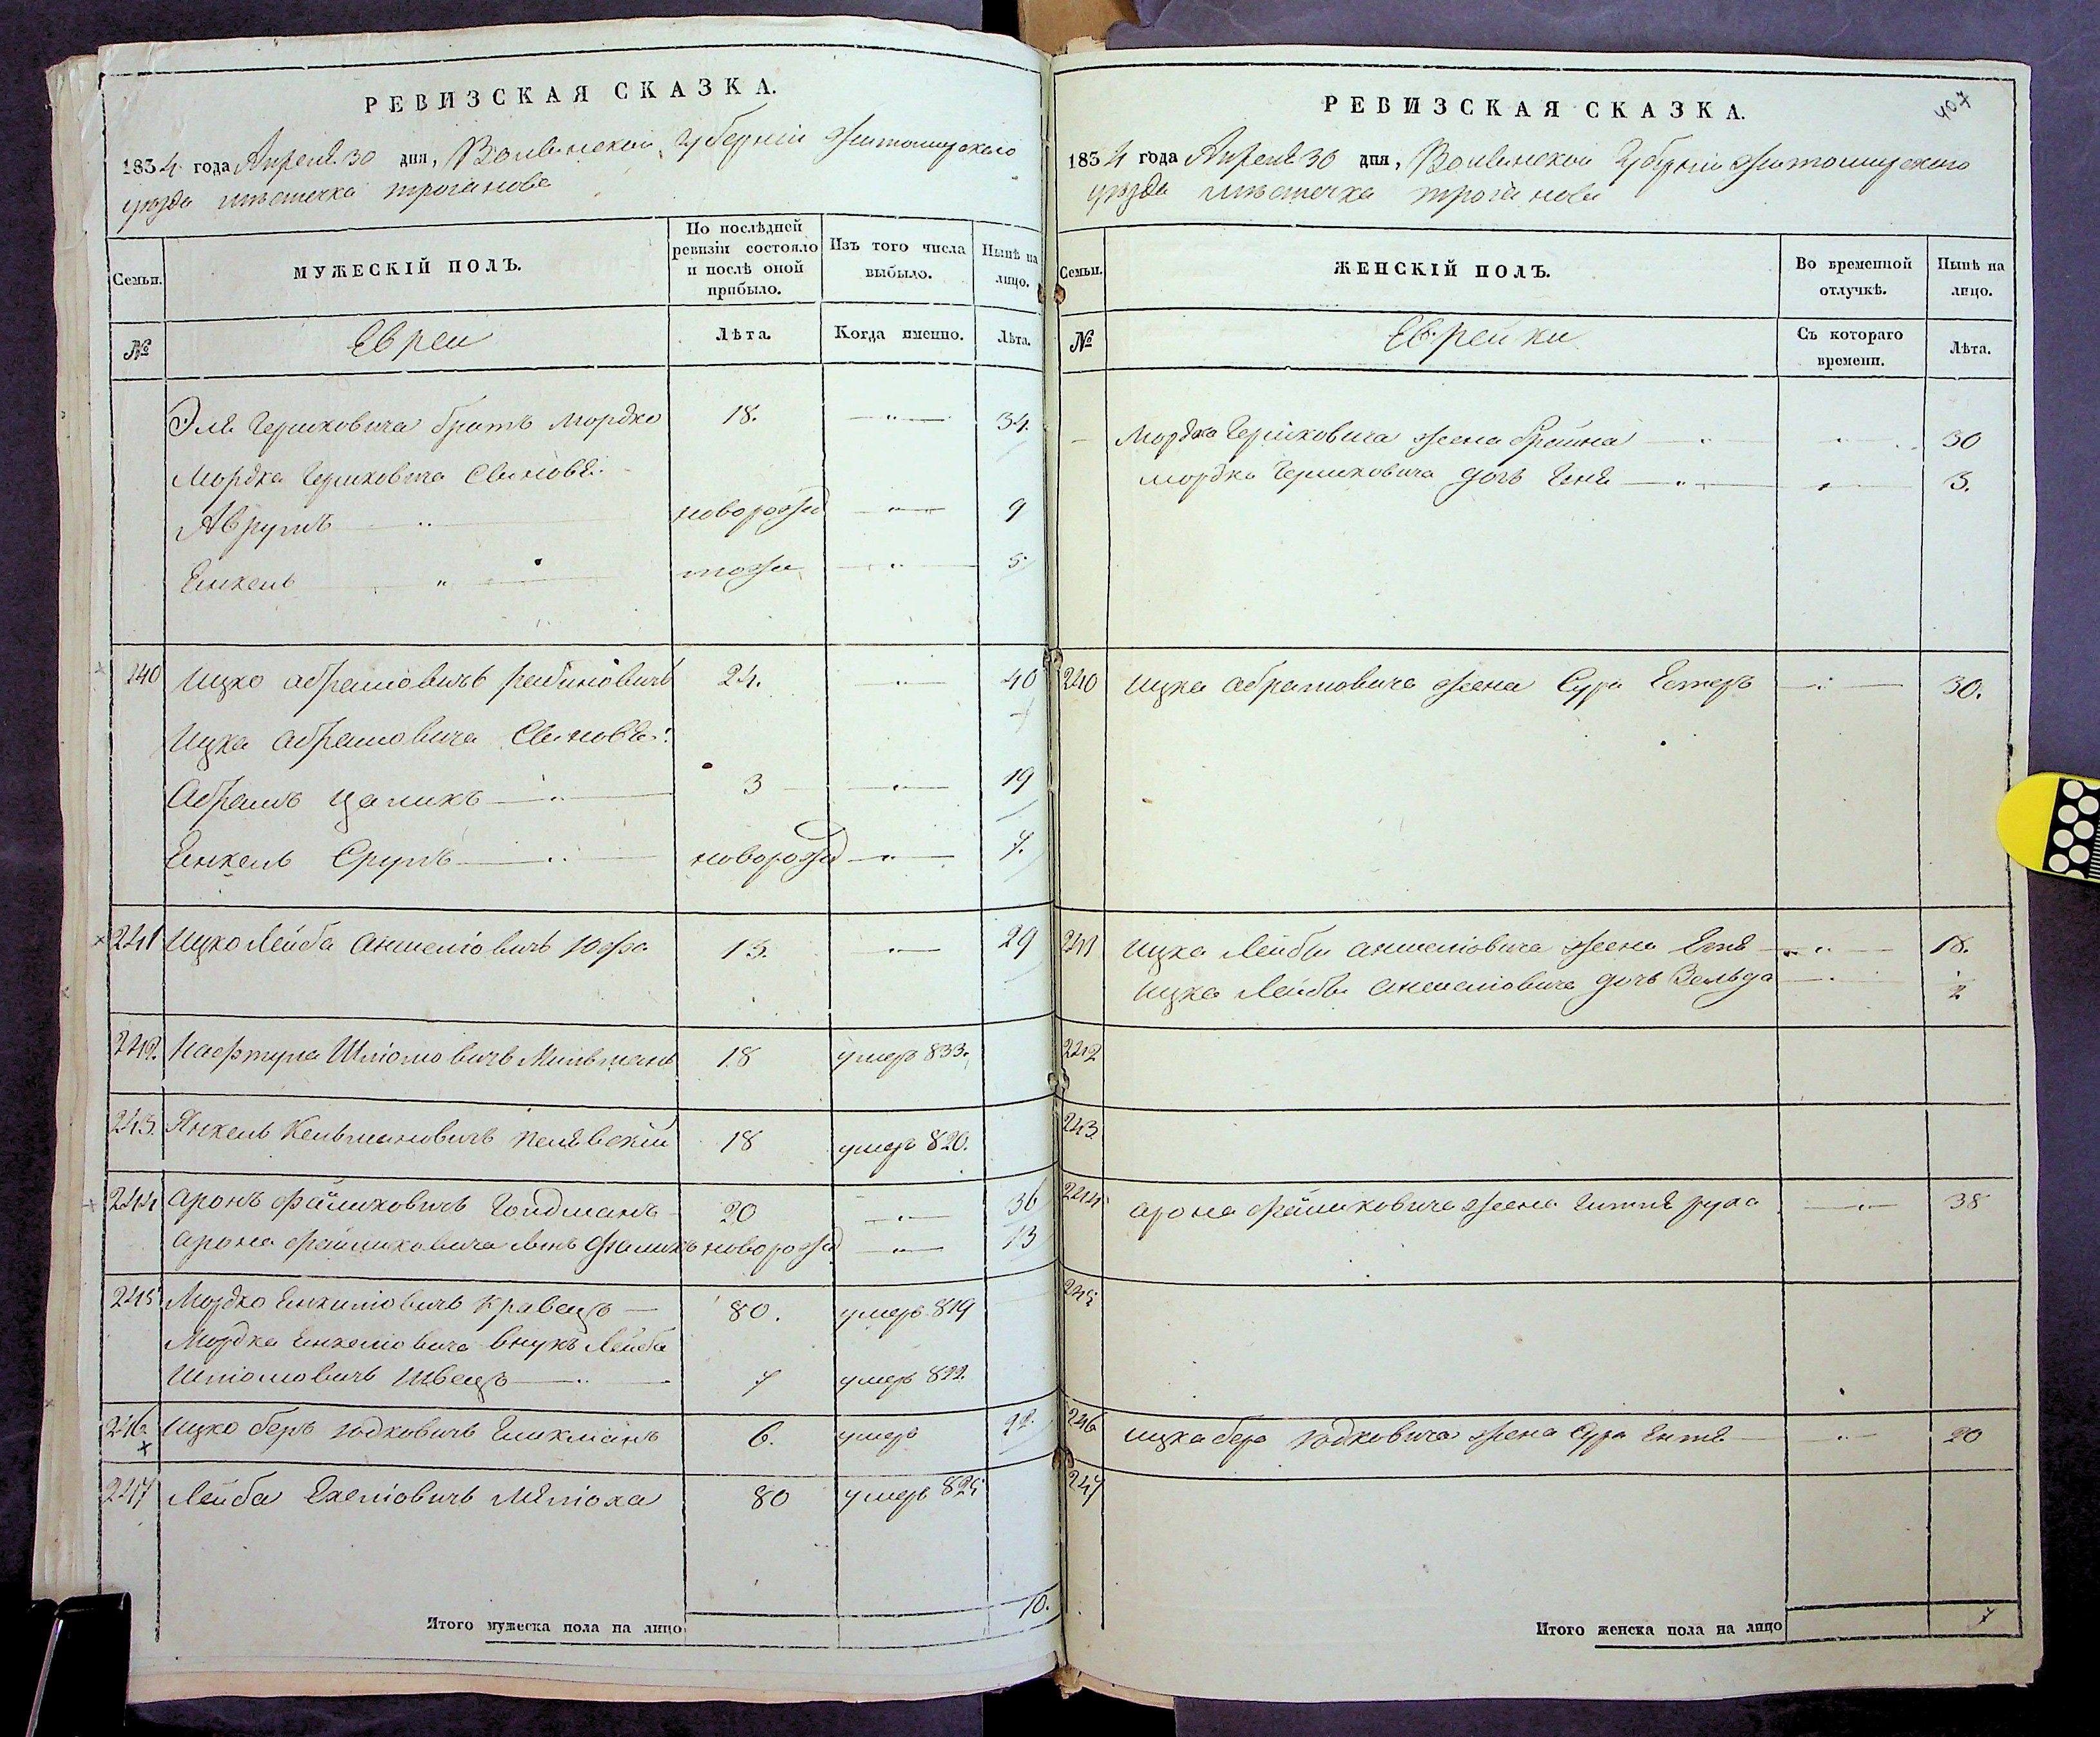 РЕВИЗСКАЯ СКАЗКА.
1834 года Апреля 30 дня, Волынской Губерніи Житомирского
уезда местечка Троянова
Семьи.
МУЖЕСКІЙ ПОЛЪ.
По послѣдней ревизіи состояло и послѣ оной прибыло.
Изъ того числа выбыло.
Нынѣ на лицо.
№
Евреи
Лѣта.
Когда именно.
Лѣта.
Эля Гершковича братъ Мордко 18. 34.
Мордка Гершковича Сыновья:
Аврумъ новорожд 9
Енкель тоже 5
240 Ицко Абрамовичъ Рабиновичъ 24. 40
Ицка Абрамовича Сыновья:
Абрамъ Цаликъ 3 19
Енкель Срулъ новорожд 7.
241 Ицко Лейба Аншеліовичъ 13. 29
242. Нафтула Шліомовичъ 18 умеръ 833.
243. Янкель Кельмановичъ 18 умеръ 820.
244 Аронъ Файшковичъ Гольдманъ 20 36
Арона Файшковича сынъ новорожд 13
245 Мордко Енкеліовичъ Кравецъ 80. умеръ 819
Мордка Енкеліовича внукъ Лейба
Шліомовичъ Швецъ 7 умеръ 822.
246. Ицко Беръ Юдковичъ 6. умеръ 22.
247 Лейба 80 умеръ 825
Итого мужеска пола на лицо 10.
РЕВИЗСКАЯ СКАЗКА.
407
1834 года Апреля 30 дня, Волынской Губерніи Житомирского
уезда местечка Троянова
Семьи.
ЖЕНСКІЙ ПОЛЪ.
Во временной отлучкѣ.
Нынѣ на лицо.
№
Еврейки
Съ котораго времени.
Лѣта.
Мордка Гершковича жена Фрейна 30
Мордка Гершковича дочь Геня 3.
240 Ицка Абрамовича жена Сура Естеръ 30.
241 Ицка Лейбы Аншеліовича жена 18.
Ицка Лейбы Аншеліовича дочь 2
242
243
244 Арона Файшковича жена Гитля Руха 38
245
246 Ицка Бера Юдковича жена Сура Ентя 20
247
Итого женска пола на лицо 7